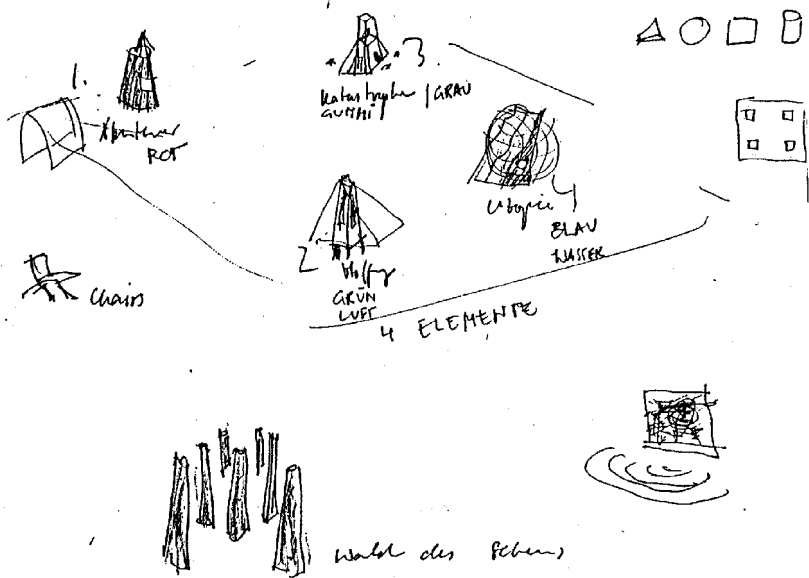 1.
Abenteuer
ROT
3.
Katastrophe / GRAU
GUMMI
Utopie 4
BLAU
WASSER
2
Hoffnung
GRÜN
LUFT
4 ELEMENTE
Chairs
Wald des